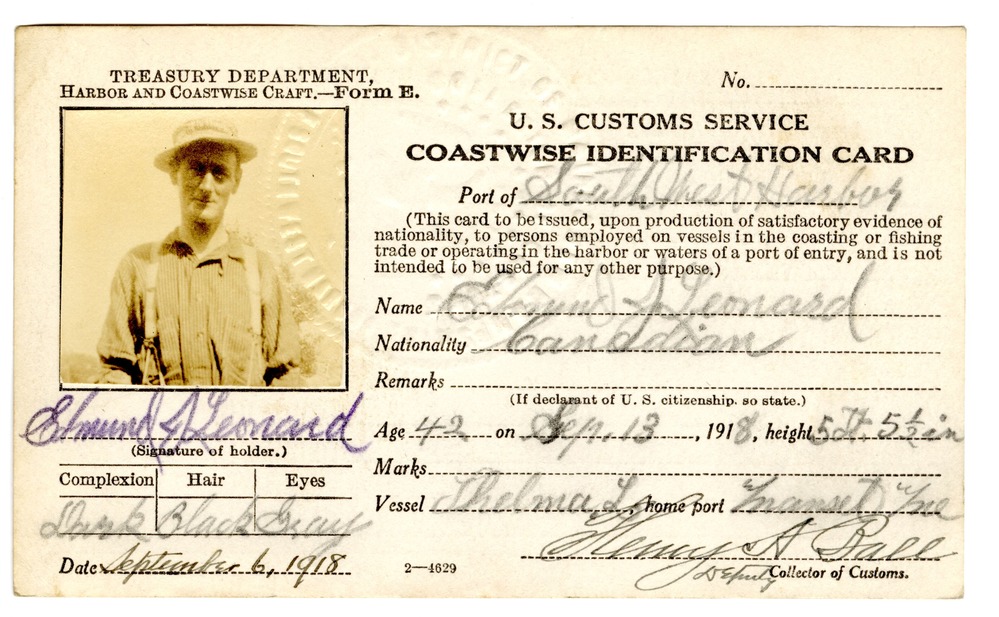 TREASURY DEPARTMENT,
HARBOR AND COASTWISE CRAFT.—Form E.
Elmund J Leonard
(Signature of holder.)
Complexion Hair Eyes
Dark Black Gray
Date September 6, 1918
No.
U. S. CUSTOMS SERVICE
COASTWISE IDENTIFICATION CARD
Port of South West Harbor
(This card to be issued, upon production of satisfactory evidence of
nationality, to persons employed on vessels in the coasting or fishing
trade or operating in the harbor or waters of a port of entry, and is not
intended to be used for any other purpose.)
Name Elmund J Leonard
Nationality Canadian
Remarks
(If declarant of U. S. citizenship, so state.)
Age 42 on Sep. 13, 1918, height 5 ft. 5½ in
Marks
Vessel Thelma L, home port Manset Me
Henry A Ball
Deputy Collector of Customs.
2—4629